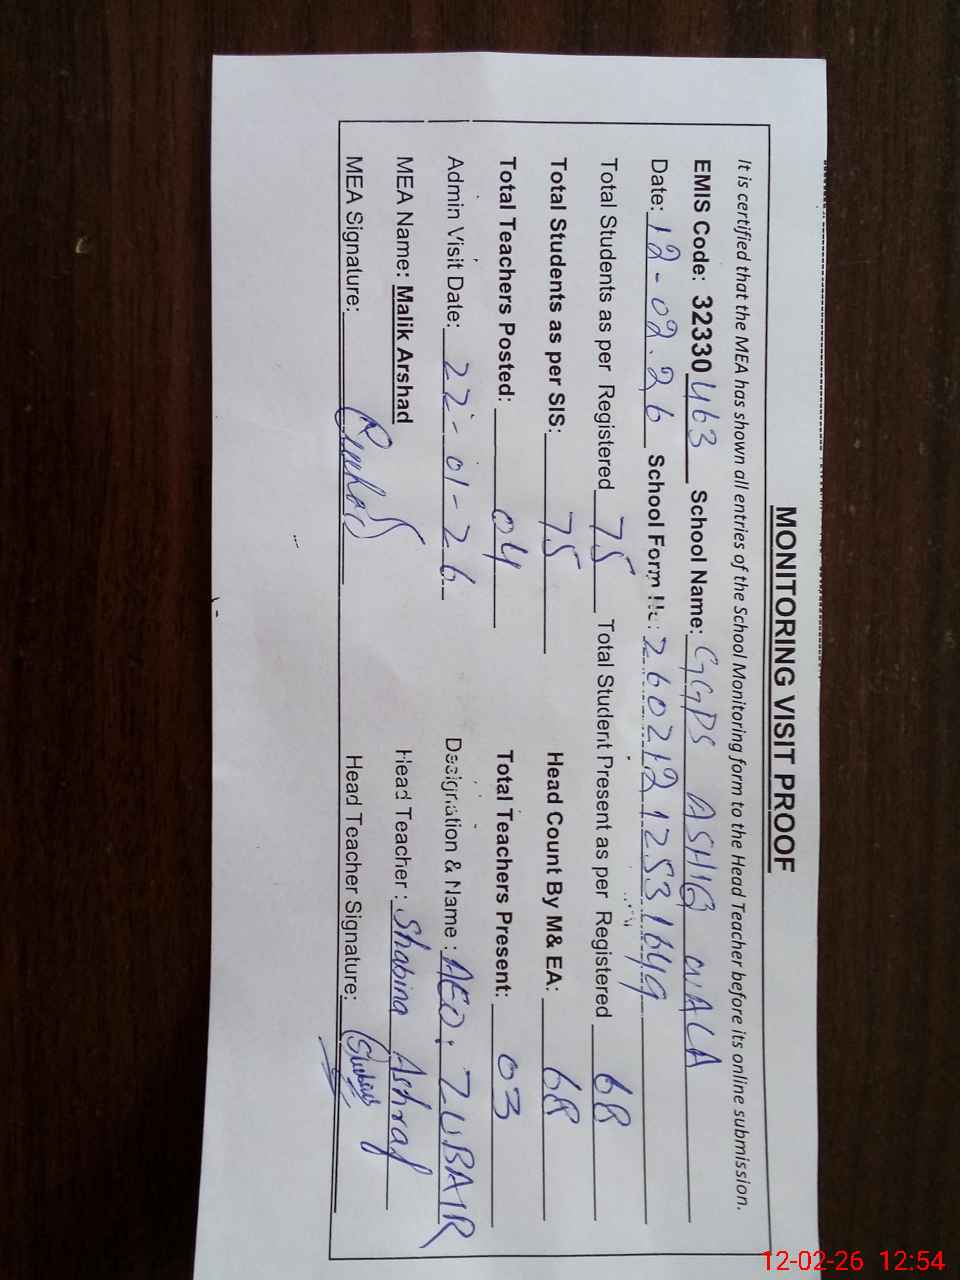 MONITORING VISIT PROOF
It is certified that the MEA has shown all entries of the School Monitoring form to the Head Teacher before its online submission.
EMIS Code: 32330463 School Name: GGPS ASHIQ WALA
Date: 12-02.26 School Form No: 26021212531649
Total Students as per Registered 75 Total Student Present as per Registered 68
Total Students as per SIS: 75 Head Count By M& EA: 68
Total Teachers Posted: 04 Total Teachers Present: 03
Admin Visit Date: 22-01-26 Designation & Name : AEO. ZUBAIR
MEA Name: Malik Arshad Head Teacher : Shabina Ashraf
MEA Signature: Head Teacher Signature:
12-02-26 12:54